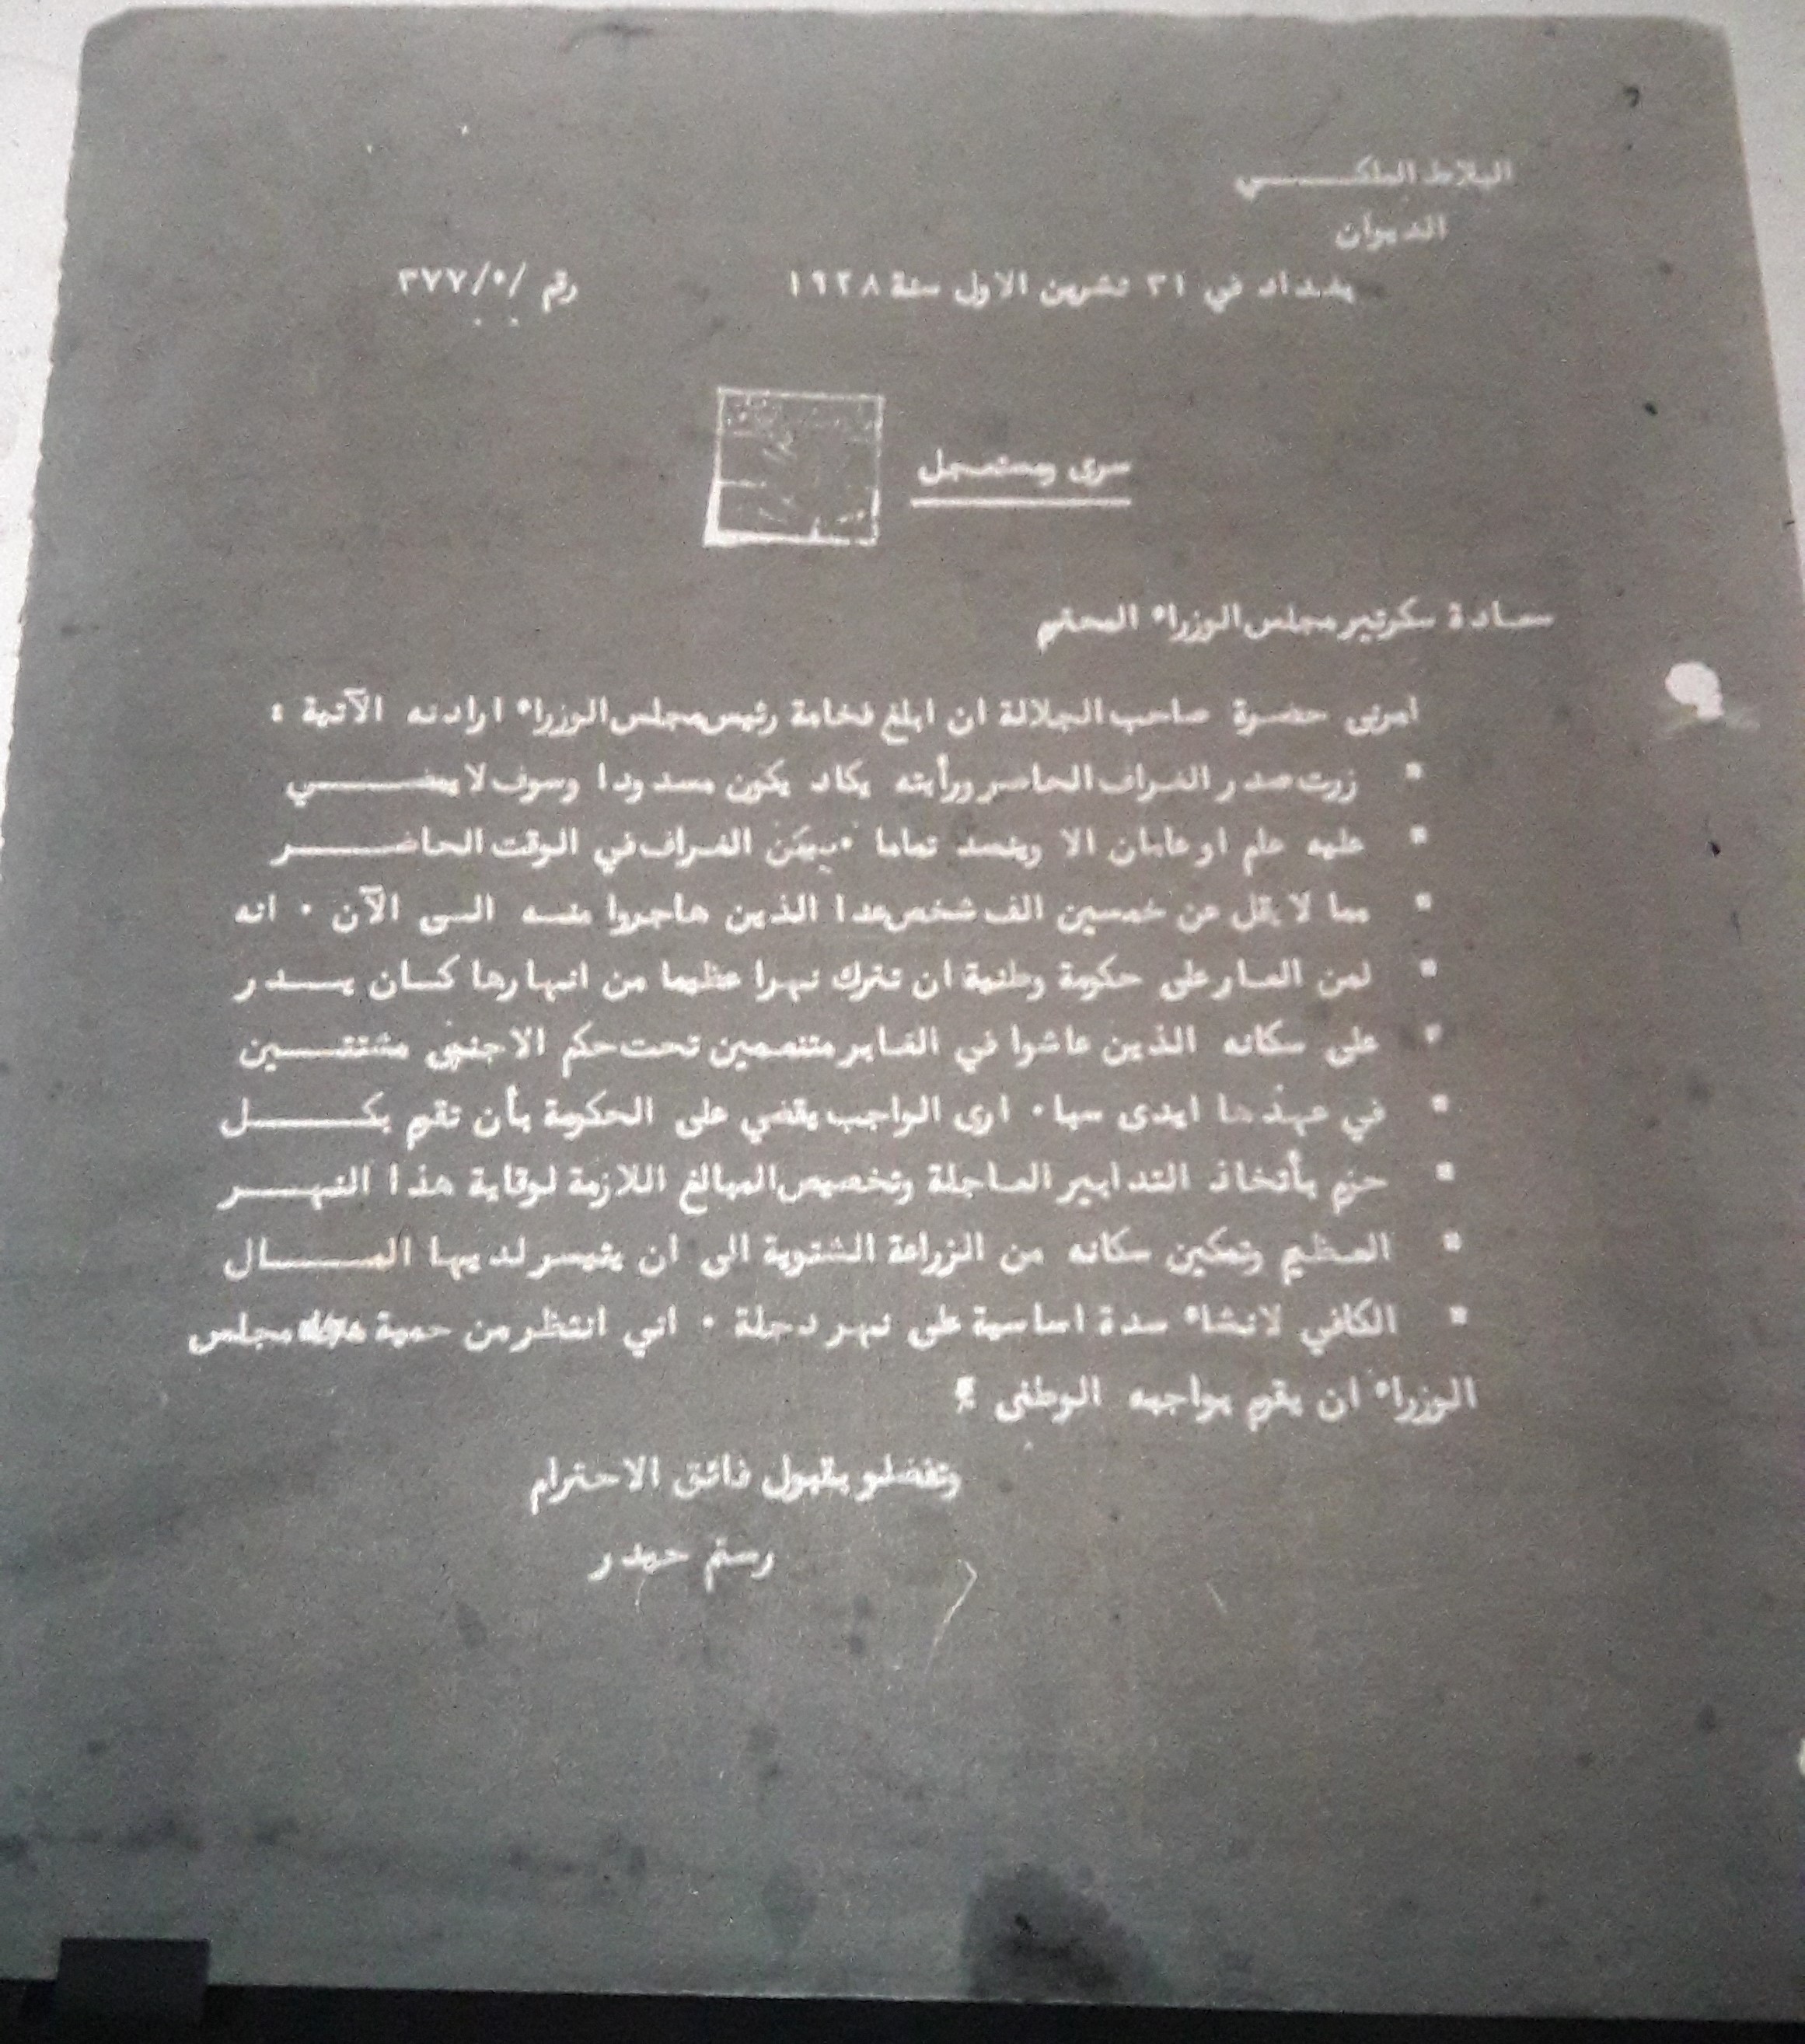 البلاط الملكي
الديوان
بغداد في ٣١ تشرين الاول سنة ١٩٢٨ رقم /٥/٣٧٧
سرى ومستعجل
سعادة سكرتير مجلس الوزراء المحترم
امرنى حضرة صاحب الجلالة ان ابلغ فخامة رئيس مجلس الوزراء ارادته الآتية :
" زرت صدر الغراف الحاضر ورأيته يكاد يكون مسدودا وسوف لا يمضي
" عليه عام او عامان الا وينسد تماما . يسكن الغراف في الوقت الحاضر
" مما لا يقل عن خمسين الف شخص عدا الذين هاجروا منه الى الآن . انه
" لمن العار على حكومة وطنية ان تترك نهرا عظيما من انهارها كان يدر
" على سكانه الذين عاشوا في الغابر متنعمين تحت حكم الاجنبى مشتتين
" في عهدها ايدى سبا . ارى الواجب يقضي على الحكومة بأن تقوم بكل
" حزم بأتخاذ التدابير العاجلة وتخصيص المبالغ اللازمة لوقاية هذا النهر
" العظيم وتمكين سكانه من الزراعة الشتوية الى ان يتيسر لديها المال
" الكافي لانشاء سدة اساسية على نهر دجلة . اني انتظر من حمية مجلس
الوزراء ان يقوم بواجبه الوطنى "
وتفضلو بقبول فائق الاحترام
رستم حيدر